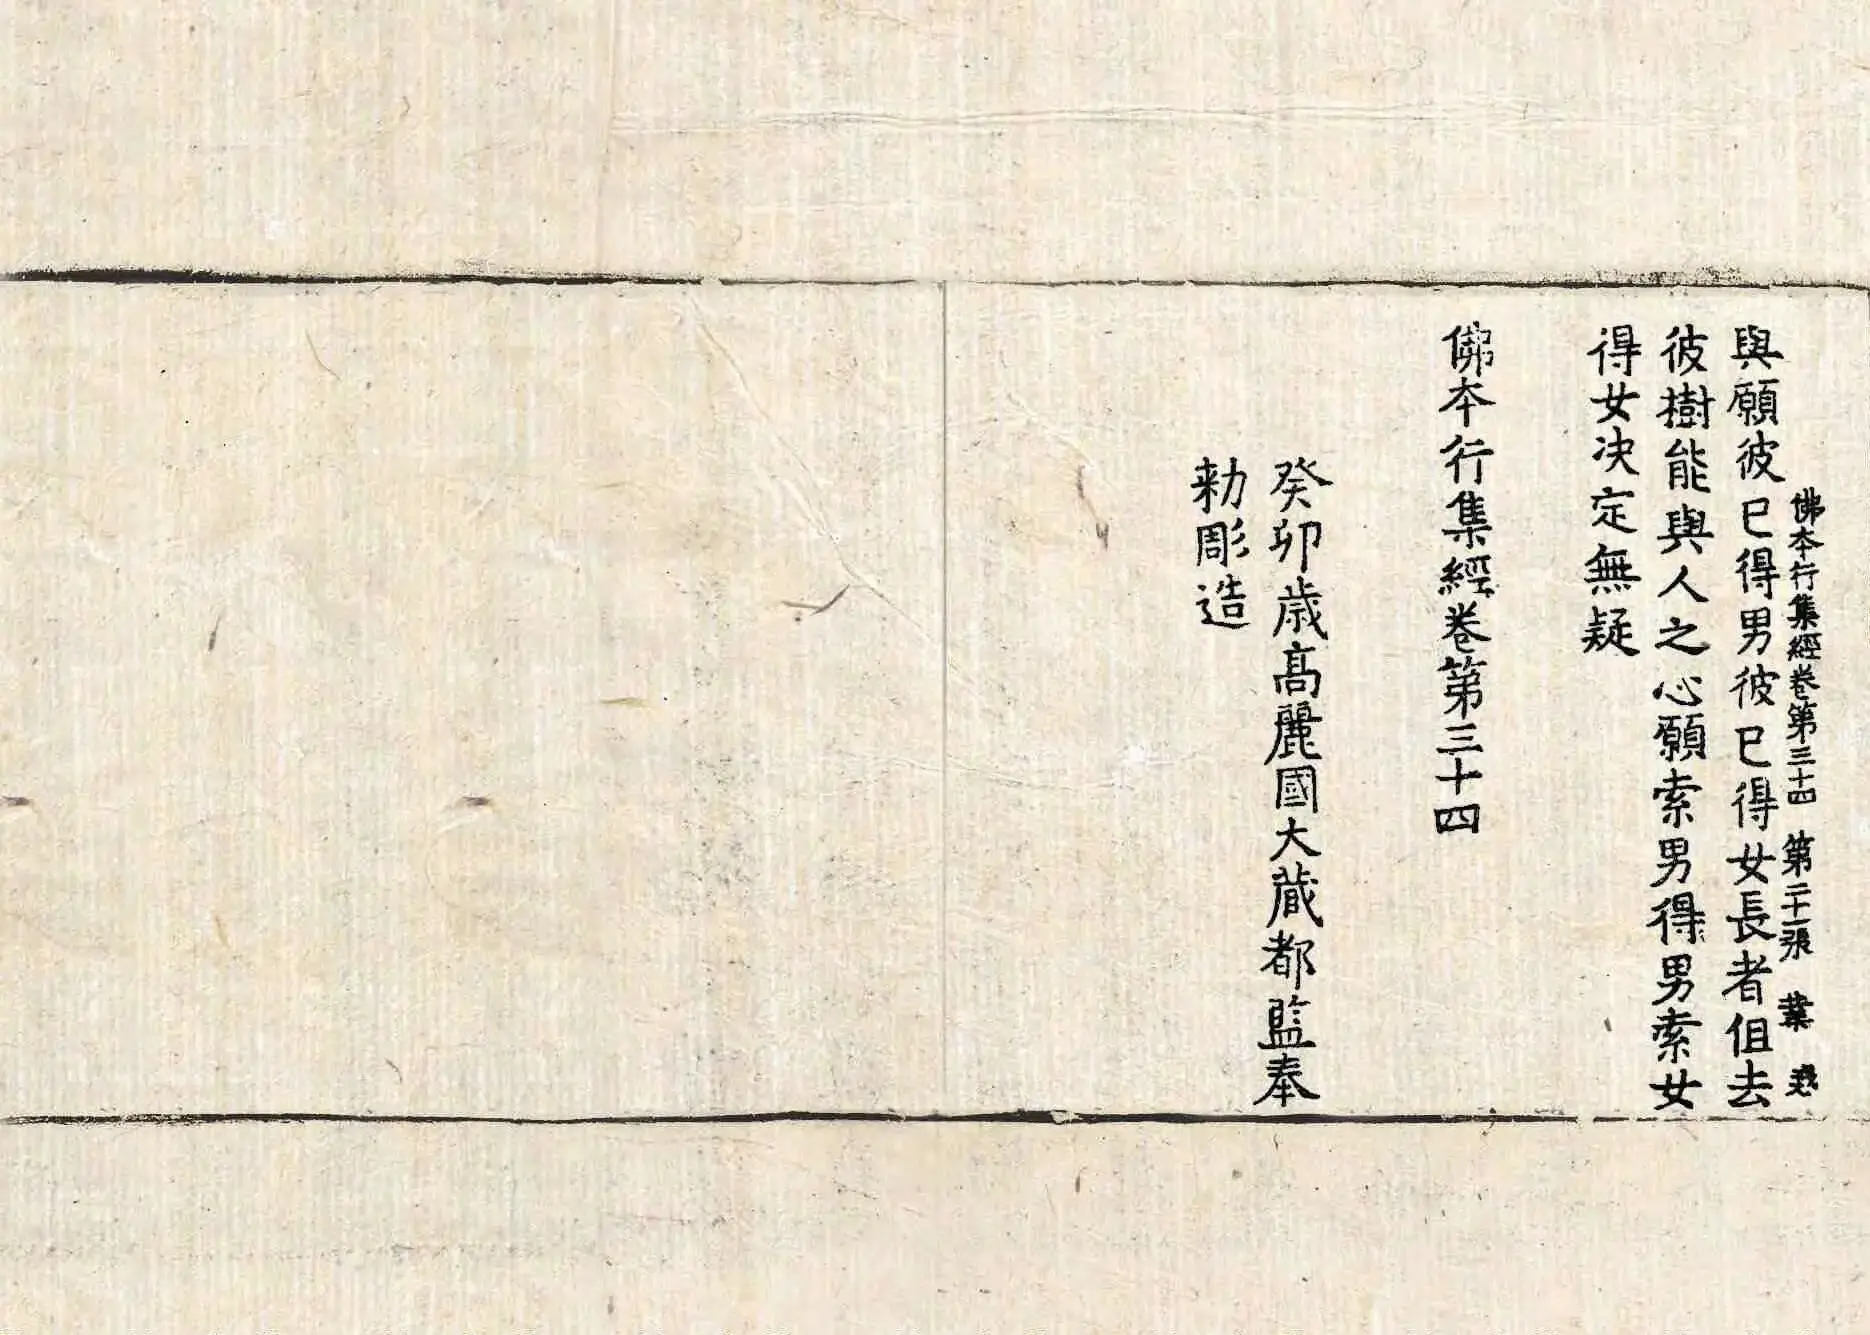 佛本行集經卷第三十四 第二十一張 業
與願彼已得男彼已得女長者但去
彼樹能與人之心願索男得男索女
得女決定無疑
佛本行集經卷第三十四
癸卯歲高麗國大藏都監奉
勅彫造